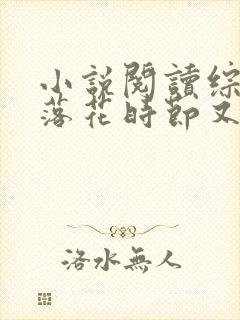 小說閱讀綜
落花時節又
洛水無人